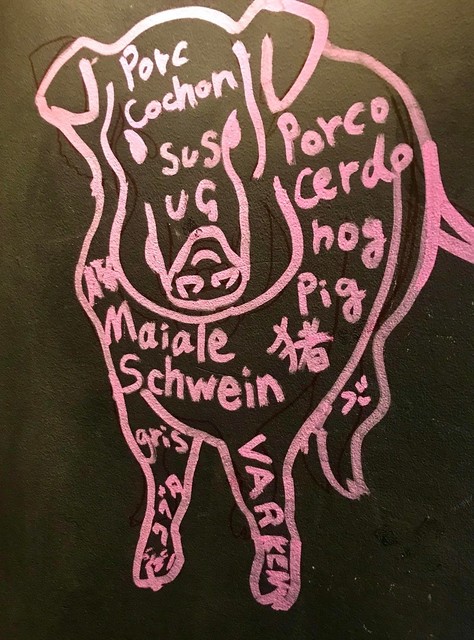 Porc
Cochon
sus
UG
Porco
Cerdo
hog
Pig
猪
Maiale
Schwein
gris
VARKEN